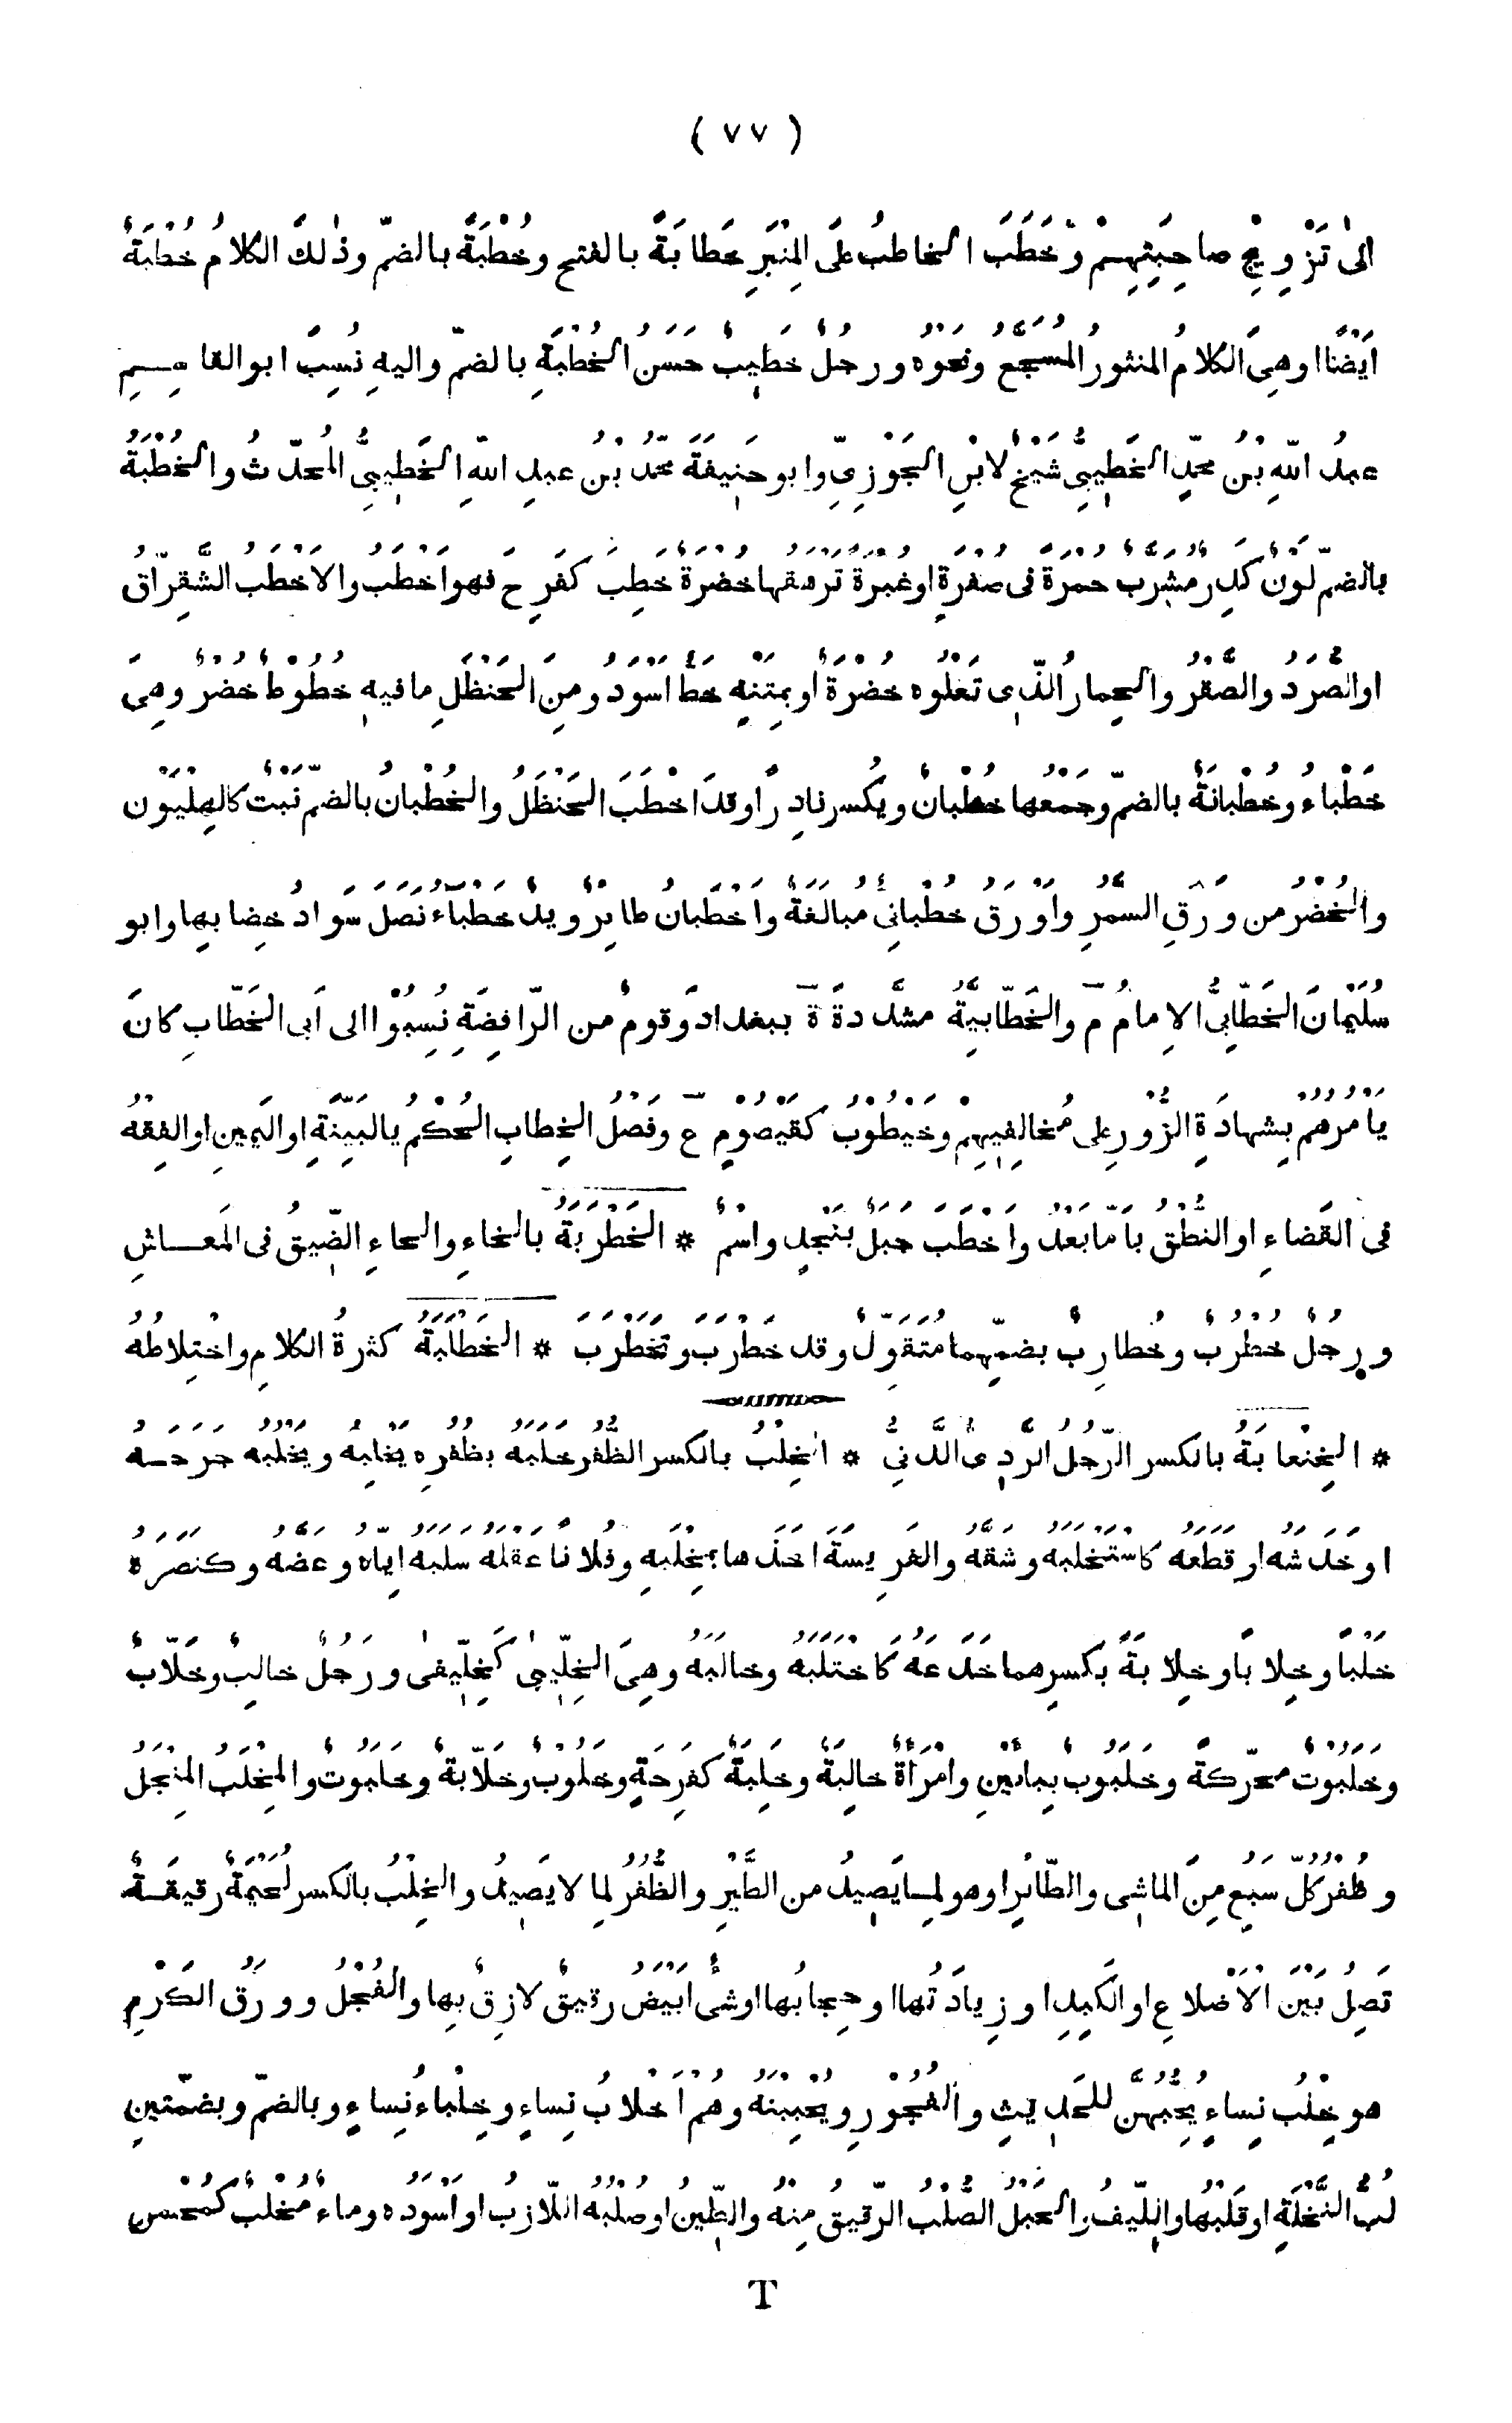 ( ٧٧ )
الىٰ تَزْوِيجِ صاحِبَتِهِمْ وَخَطَبَ الخاطبُ علَى المِنْبَرِ خَطابَةً بالفتح وخُطْبَةً بالضمّ وذٰلكَ الكلامُ خُطْبَةٌ
اَيْضًا اوهىَ الكلامُ المنثورُ المُسَجَّعُ ونَحْوُه ورجُلٌ خَطيبٌ حَسَنُ الخُطْبَةِ بالضمّ واليهِ نُسِبَ ابوالقاسِمِ
عبدُ اللّهِ بْنُ محمّدٍ الخَطِيبِىُّ شَيْخٌ لابْنِ الجَوْزِىِّ وابو حَنِيفَةَ محمّدُ بْنُ عبدِ اللّهِ الخَطِيبِىُّ المُحدّثُ والخُطْبَةُ
بالضمّ لَوْنٌ كَدِرٌ مُشْرَبٌ حُمْرَةً فى صُفْرَةٍ اوغُبْرَةٌ تَرْهَقُها خُضْرَةٌ خَطِبَ كَفَرِحَ فهواَخْطَبُ والاَخْطَبُ الشِّقِرَّاقُ
اوالصُّرَدُ والصَّقْرُ والحِمارُ الّذِى تَعْلُوه خُضْرَةٌ اوبِمَتْنِهِ خَطٌّ اَسْوَدُ ومِنَ الحَنْظَلِ مافيهِ خُطُوْطٌ خُضْرٌ وهىَ
خَطْباءُ وخُطْبانَةٌ بالضمّ وجَمْعُها خُطْبانٌ ويُكسرنادِرًا وقدَاخْطَبَ الحَنْظَلُ والخُطْبانُ بالضمّ نَبْتٌ كالهِلْيَوْنِ
والخُضْرُ من ورَقِ السَّمُرِ واَوْرَقُ خُطْبانِىٌّ مُبالَغَةٌ واَخْطَبانُ طايِرٌ ويدٌ خَطْباءُ نَصَلَ سَوادُ خِضابِها وابو
سُلَيْمانَ الخَطّابِىُّ الاِمامُ م والخَطّابِيَّةُ مشدّدةً ة ببغدادَ وقومٌ من الرّافِضَةِ نُسِبُوْا الى اَبى الخَطّابِ كانَ
يَاْمُرُهُمْ بِشهادَةِ الزُّوْرِ على مُخالِفِيهِمْ وخَيْطُوْبُ كَقَيْصُوْمٍ ع وفَصْلُ الخِطابِ الحُكْمُ بالبَيِّنَةِ اواليَمِينِ اوالفِقْهُ
فى القَضاءِ اوالنُّطْقُ بِاَمّابَعْدُ واَخْطَبُ جبَلٌ بِنَجْدٍ واسْمٌ * الخَطْرَبَةُ بالخاءِ والحاءِ الضِّيقُ فى المَعاشِ
ورجُلٌ خُطْرُبٌ وخُطارِبٌ بضمِّهِما مُتَقَوِّلٌ وقد خَطْرَبَ وتَخَطْرَبَ * الخَطْلَبَةُ كثرةُ الكلامِ واخْتِلاطُهُ
* الخِنْعابَةُ بالكسر الرّجُلُ الرَّدِىُّ الدَّنِىُّ * الخِلْبُ بالكسر الظُّفُرُ خَلَبَهُ بظُفُرِهِ يَخْلِبُهُ ويَخْلُبُه جَرَحَهُ
اوخَدَشَه اوقَطَعَه كاسْتَخْلَبَه وشَقَّه والفَرِيسَةَ اخَذَها بِمِخْلَبِهِ وفُلانًا عَقْلَهُ سَلَبَهُ اِيّاه وعَضَّه وكنَصَرَهُ
خَلْبًا وخِلابًا وخِلابَةً بكسرهما خَدَعَهُ كاخْتَلَبَهُ وخالَبَهُ وهىَ الخِلِّيبىٰ كَخِلِّيفىٰ ورَجُلٌ خالِبٌ وخَلّابٌ
وخَلَبُوْتٌ محرّكةً وخَلَبُوبٌ بِباءَيْنِ وامْرَاَةٌ خالِبَةٌ وخَلِبَةٌ كفَرِحَةٍ وخَلُوْبٌ وخَلّابَةٌ وخَلَبُوتٌ والمِخْلَبُ المِنْجَلُ
وظُفُرُ كلّ سَبُعٍ مِنَ الماشى والطّائِرِ اوهو لِما يَصِيدُ من الطَّيْرِ والظُّفُرُ لِما لا يَصِيدُ والخِلْبُ بالكسر لُحَيْمَةٌ رقيقَةٌ
تَصِلُ بَيْنَ الاَضْلاعِ اوالكَبِدُ اوزِيادَتُها اوحِجابُها اوشَىٌ اَبْيَضُ رقيقٌ لازِقٌ بِها والفُجْلُ وورَقُ الكَرْمِ
هو خِلْبُ نِساءٍ يُحِبُّهُنَّ للحَدِيثِ والفُجُوْرِ ويُحْبِبْنَهُ وهُمْ اَخْلابُ نِساءٍ وخِلْباءُ نِساءٍ وبالضمّ وبضمّتينِ
لُبُّ النَّخْلَةِ اوقَلْبُها واللِّيفُ والحَبْلُ الصُّلْبُ الرّقيقُ مِنْهُ والطِّينُ اوصُلْبُهُ اللّازِبُ اواَسْوَدُه وماءٌ مُخْلِبٌ كمُحْسِنٍ
T